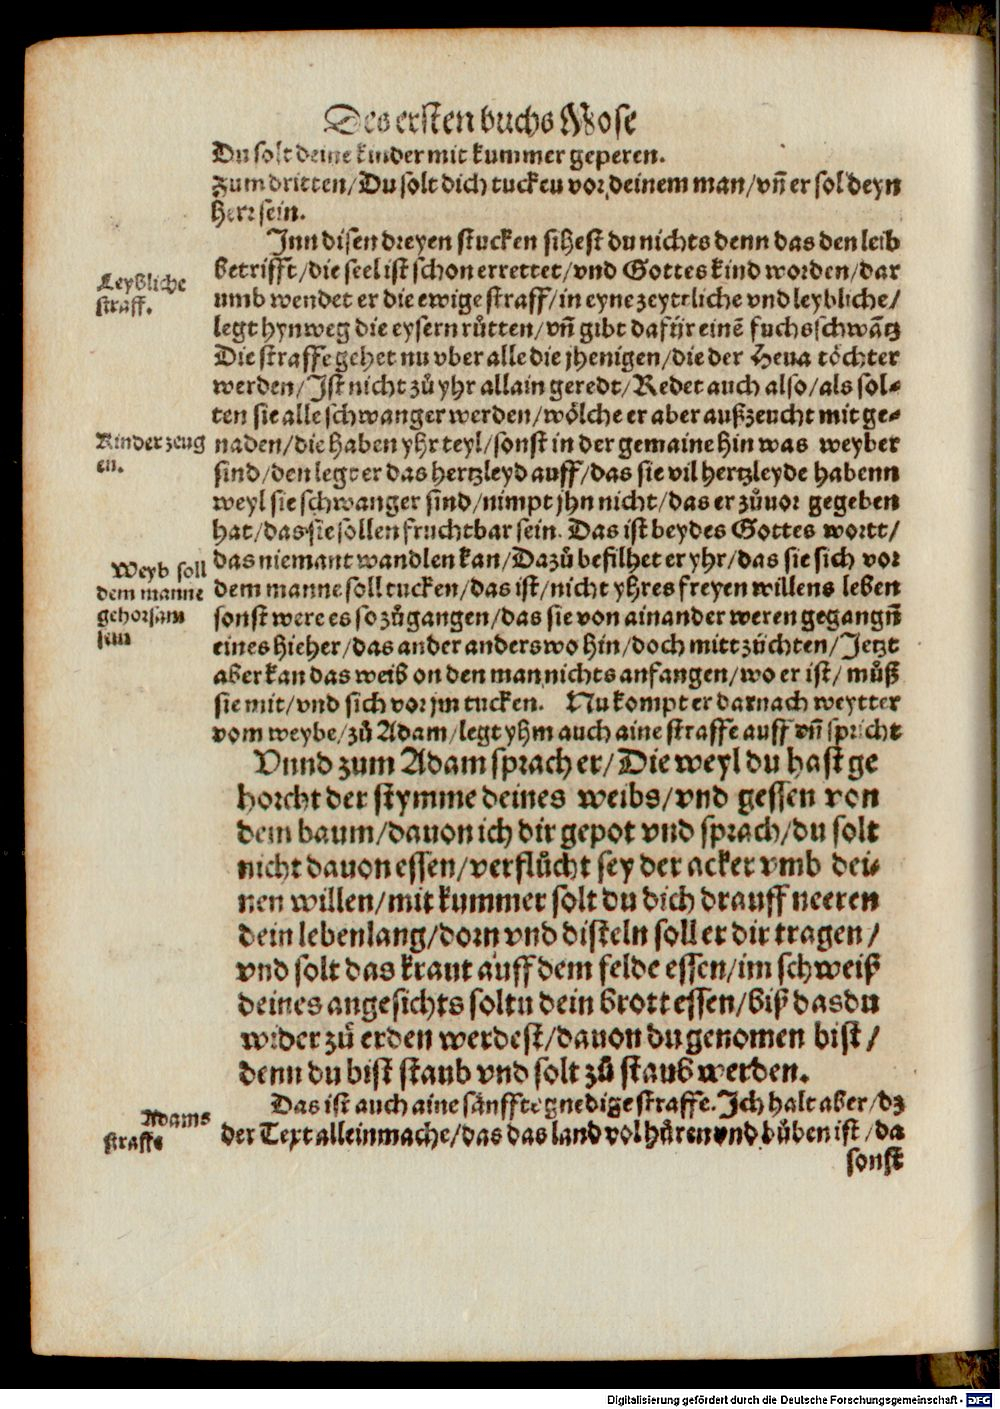 Des ersten buchs Mose
Du solt deine kinder mit kummer geperen.
Zum dritten/Du solt dich tucken vor deinem man/vñ er sol deyn
Herr sein.
Jnn disen dreyen stucken sihest du nichts denn das den leib
betrifft/die seel ist schon errettet/vnd Gottes kind worden/dar
umb wendet er die ewige straff/in eyne zeyttliche vnd leybliche/
Leybliche
straff.
legt hynweg die eysern růtten/vñ gibt dafür einē fuchsschwātz
Die straffe gehet nu vber alle die jhenigen/die der Heua töchter
werden/Jst nicht zů yhr allain geredt/Redet auch also/als sol-
ten sie alle schwanger werden/wölche er aber außzeucht mit ge-
naden/die haben yhr teyl/sonst in der gemaine hin was weyber
Kinder zeug
en.
sind/den legt er das hertzleyd auff/das sie vil hertzleyde habenn
weyl sie schwanger sind/nimpt jhn nicht/das er zůuor gegeben
hat/das sie sollen fruchtbar sein. Das ist beydes Gottes wortt/
das niemant wandlen kan/Dazů befilhet er yhr/das sie sich vor
Weyb soll
dem manne
gehorsam
sein
dem manne soll tucken/das ist/nicht yhres freyen willens leben
sonst were es so zůgangen/das sie von ainander weren gegangñ
eines hieher/das ander anderswo hin/doch mitt züchten/Jetzt
aber kan das weib on den man nichts anfangen/wo er ist/můß
sie mit/vnd sich vor jm tucken. Nu kompt er darnach weytter
vom weybe/zů Adam/legt yhm auch aine straffe auff vñ spricht
Vnnd zum Adam sprach er/Die weyl du hast ge
horcht der stymme deines weibs/vnd gessen von
dem baum/dauon ich dir gepot vnd sprach/du solt
nicht dauon essen/verflůcht sey der acker vmb dei-
nen willen/mit kummer solt du dich drauff neeren
dein lebenlang/dorn vnd disteln soll er dir tragen/
vnd solt das kraut auff dem felde essen/im schweiß
deines angesichts soltu dein brott essen/biß das du
wider zů erden werdest/dauon du genomen bist/
denn du bist staub vnd solt zů staub werden.
Das ist auch aine sänffte gnedige straffe. Jch halt aber/dz
Adams
straffe
der Text allein mache/das das land vol hůren vnd bůben ist/da
sonst
Digitalisierung gefördert durch die Deutsche Forschungsgemeinschaft - DFG